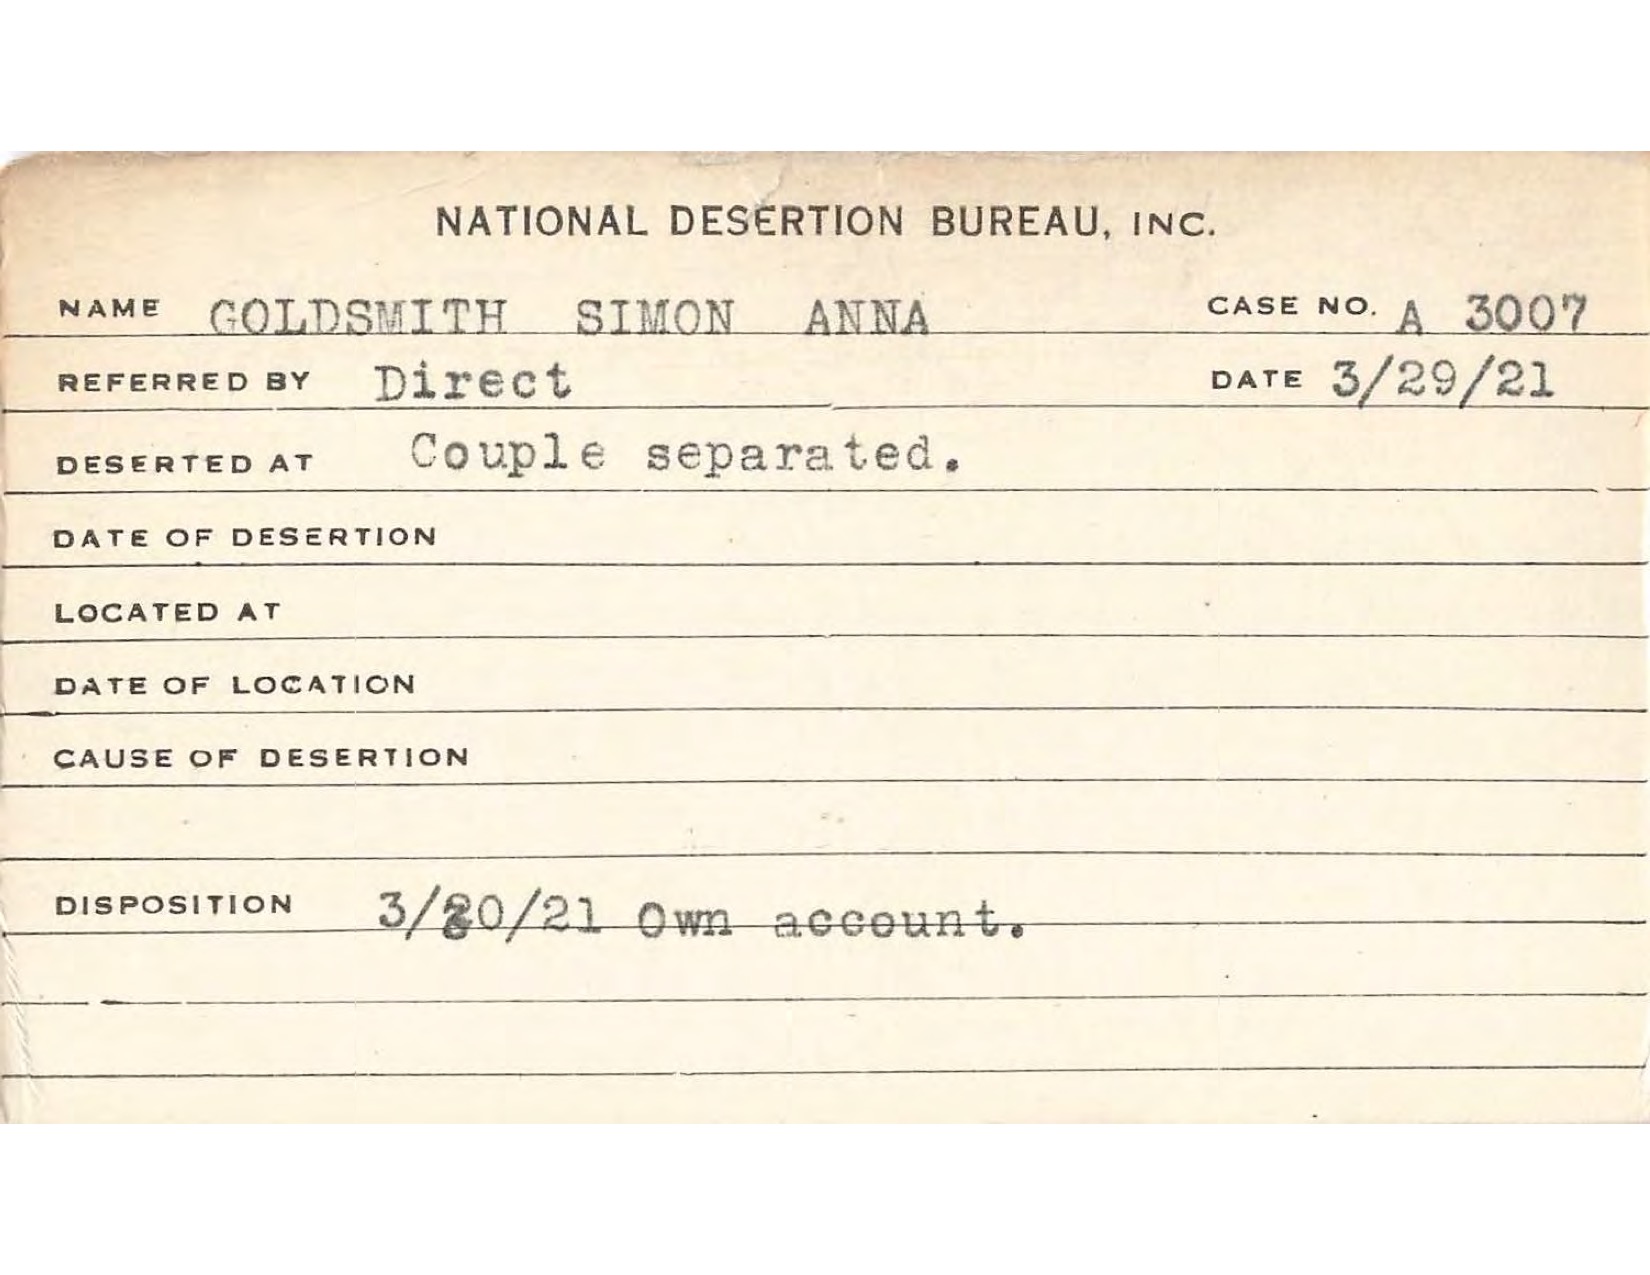 NATIONAL DESERTION BUREAU, INC.
NAME GOLDSMITH SIMON ANNA CASE NO. A 3007
REFERRED BY Direct DATE 3/29/21
DESERTED AT Couple separated.
DATE OF DESERTION
LOCATED AT
DATE OF LOCATION
CAUSE OF DESERTION
DISPOSITION Own account.